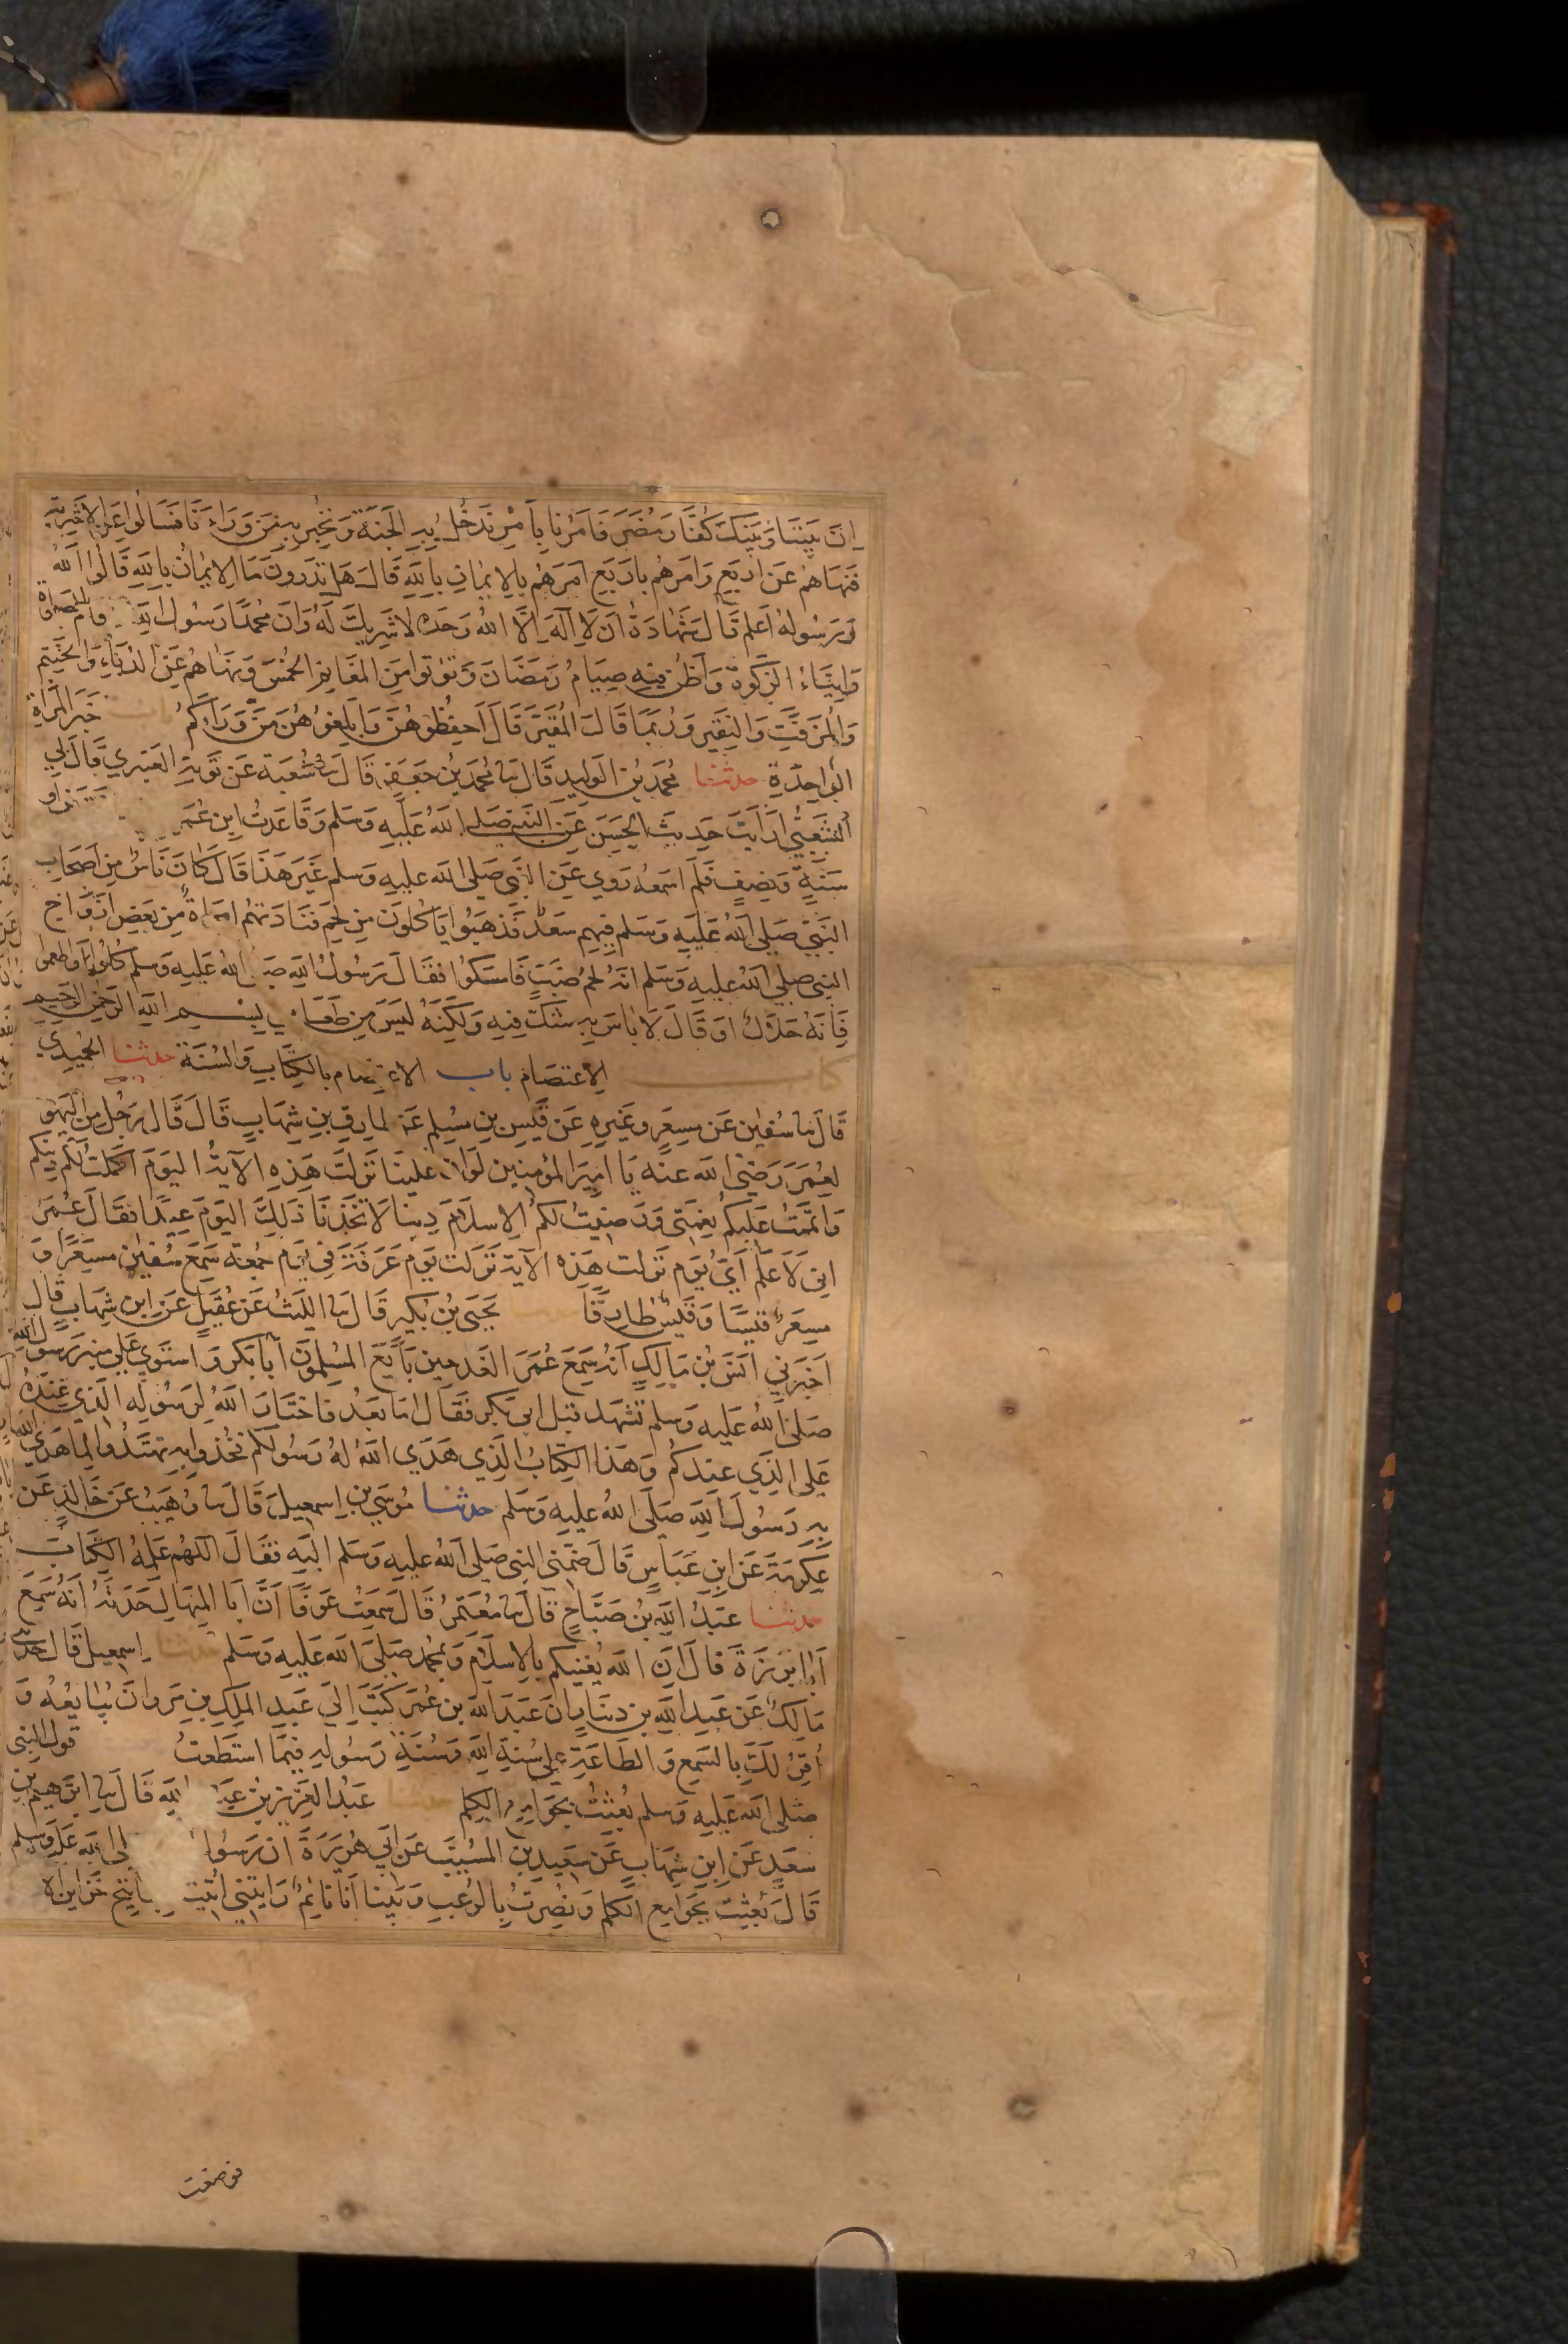 ان بيننا وبينك كفار مضر فامرنا بامر ندخل به الجنة ونخبر به من وراءنا فسالوا عن الاشربة
فنهاهم عن اربع وامرهم باربع امرهم بالايمان بالله قال هل تدرون ما الايمان بالله قالوا الله
ورسوله اعلم قال شهادة ان لا اله الا الله وحده لا شريك له وان محمدا رسول الله واقام الصلاة
وايتاء الزكوة واظن فيه صيام رمضان وتؤتوا من المغانم الخمس ونهاهم عن الدباء والحنتم
والمزفت والنقير وربما قال المقير قال احفظوهن وابلغوهن من وراءكم باب خبر المراة
الواحدة حدثنا محمد بن الوليد قال نا محمد بن جعفر قال نا شعبة عن توبة العنبري قال لي
الشعبي ارايت حديث الحسن عن النبي صلى الله عليه وسلم وقاعدت ابن عمر سنتين او
سنة ونصف فلم اسمعه روي عن النبي صلى الله عليه وسلم غير هذا قال كان ناس من اصحاب
النبي صلى الله عليه وسلم فيهم سعد فذهبوا ياكلون من لحم فنادتهم امراة من بعض ازواج
النبي صلى الله عليه وسلم انه لحم ضب فامسكوا فقال رسول الله صلى الله عليه وسلم كلوا واطعموا
فانه حلال او قال لا باس به شك فيه ولكنه ليس من طعامي بسم الله الرحمن الرحيم
كتاب الاعتصام باب الاعتصام بالكتاب والسنة حدثنا الحميدي
قال نا سفين عن مسعر وغيره عن قيس بن مسلم عن طارق بن شهاب قال قال رجل من اليهود
لعمر رضى الله عنه يا امير المؤمنين لو ان علينا نزلت هذه الآية اليوم اكملت لكم دينكم
واتممت عليكم نعمتى ورضيت لكم الاسلام دينا لاتخذنا ذلك اليوم عيدا فقال عمر
اني لاعلم اي يوم نزلت هذه الآية نزلت يوم عرفة في يوم جمعة سمع سفين مسعرا و
مسعر قيسا وقيس طارقا يحيى بن بكير قال نا الليث عن عقيل عن ابن شهاب قال
اخبرني انس بن مالك انه سمع عمر الغد حين بايع المسلمون ابا بكر واستوي على منبر رسول الله
صلى الله عليه وسلم تشهد قبل ابي بكر فقال اما بعد فاختار الله لرسوله الذي عنده
على الذي عندكم وهذا الكتاب الذي هدى الله له رسولكم فخذوا به تهتدوا لما هدي الله
به رسول الله صلى الله عليه وسلم حدثنا موسى بن اسمعيل قال نا وهيب عن خالد عن
عكرمة عن ابن عباس قال ضمني النبي صلى الله عليه وسلم اليه فقال اللهم علمه الكتاب
حدثنا عبد الله بن صباح قال نا معتمر قال سمعت عوفا ان ابا المنهال حدثه انه سمع
ابا برزة قال ان الله يغنيكم بالاسلام وبمحمد صلى الله عليه وسلم حدثنا اسمعيل قال حدثني
مالك عن عبد الله بن دينار ان عبد الله بن عمر كتب الي عبد الملك بن مروان يبايعه و
اقر لك بالسمع والطاعة على سنة الله وسنة رسوله فيما استطعت قول النبي
صلى الله عليه وسلم بعثت بجوامع الكلم حدثنا عبد العزيز بن عبد الله قال نا ابرهيم بن
سعد عن ابن شهاب عن سعيد بن المسيب عن ابي هريرة ان رسول الله صلى الله عليه وسلم
قال بعثت بجوامع الكلم ونصرت بالرعب وبينا انا نائم رايتني اتيت بمفاتيح خزائن الارض
فوضعت